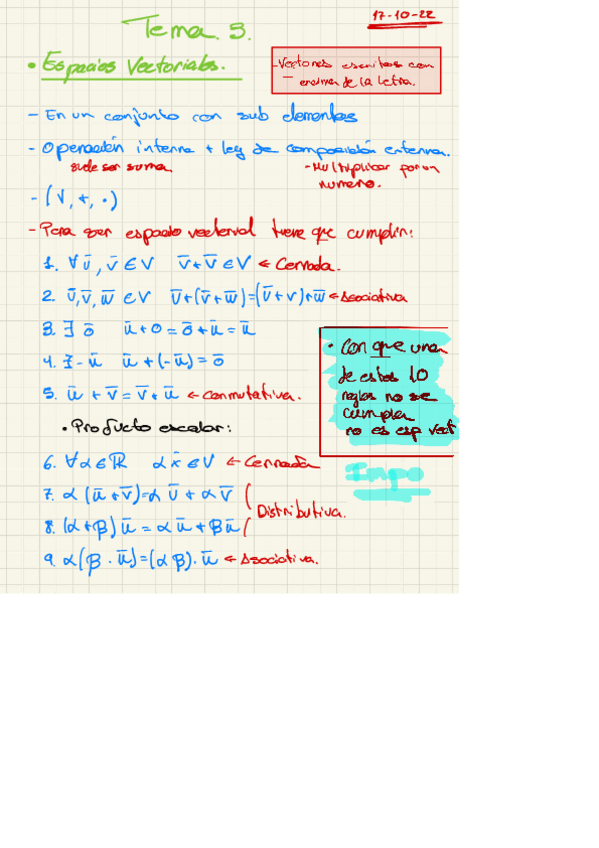 17-10-22
Tema. 3.
• Espacios Vectoriales.
- Vectores escritos con
encima de la letra.
- En un conjunto con sub elementos
- Operación interna + ley de composición externa.
suele ser suma
- Multiplicar por un
numero.
- (V, +, ·)
- Para ser espacio vectorial tiene que cumplir:
1. ∀ ū, v̄ ∈ V v̄+v̄ ∈ V ← Cerrada.
2. ū, v̄, w̄ ∈ V ū+(v̄+w̄)=(ū+v)+w̄ ← Asociativa
3. ∃ ō ū+0=ō+ū=ū
4. ∃-ū ū+(-ū)=ō
5. ū + v̄ = v̄ + ū ← Conmutativa.
• Con que una
de estas 10
reglas no se
cumpla
no es esp vect
• Producto escalar:
6. ∀α∈ℝ α x̄ ∈ V ← Cerrada
Impo
7. α (ū+v̄)=α ū + α v̄
Distributiva.
8. (α+β) ū = α ū + β ū
9. α(β · ū)=(α β). ū ← Asociativa.